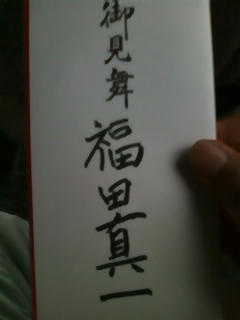 御見舞
福田真一